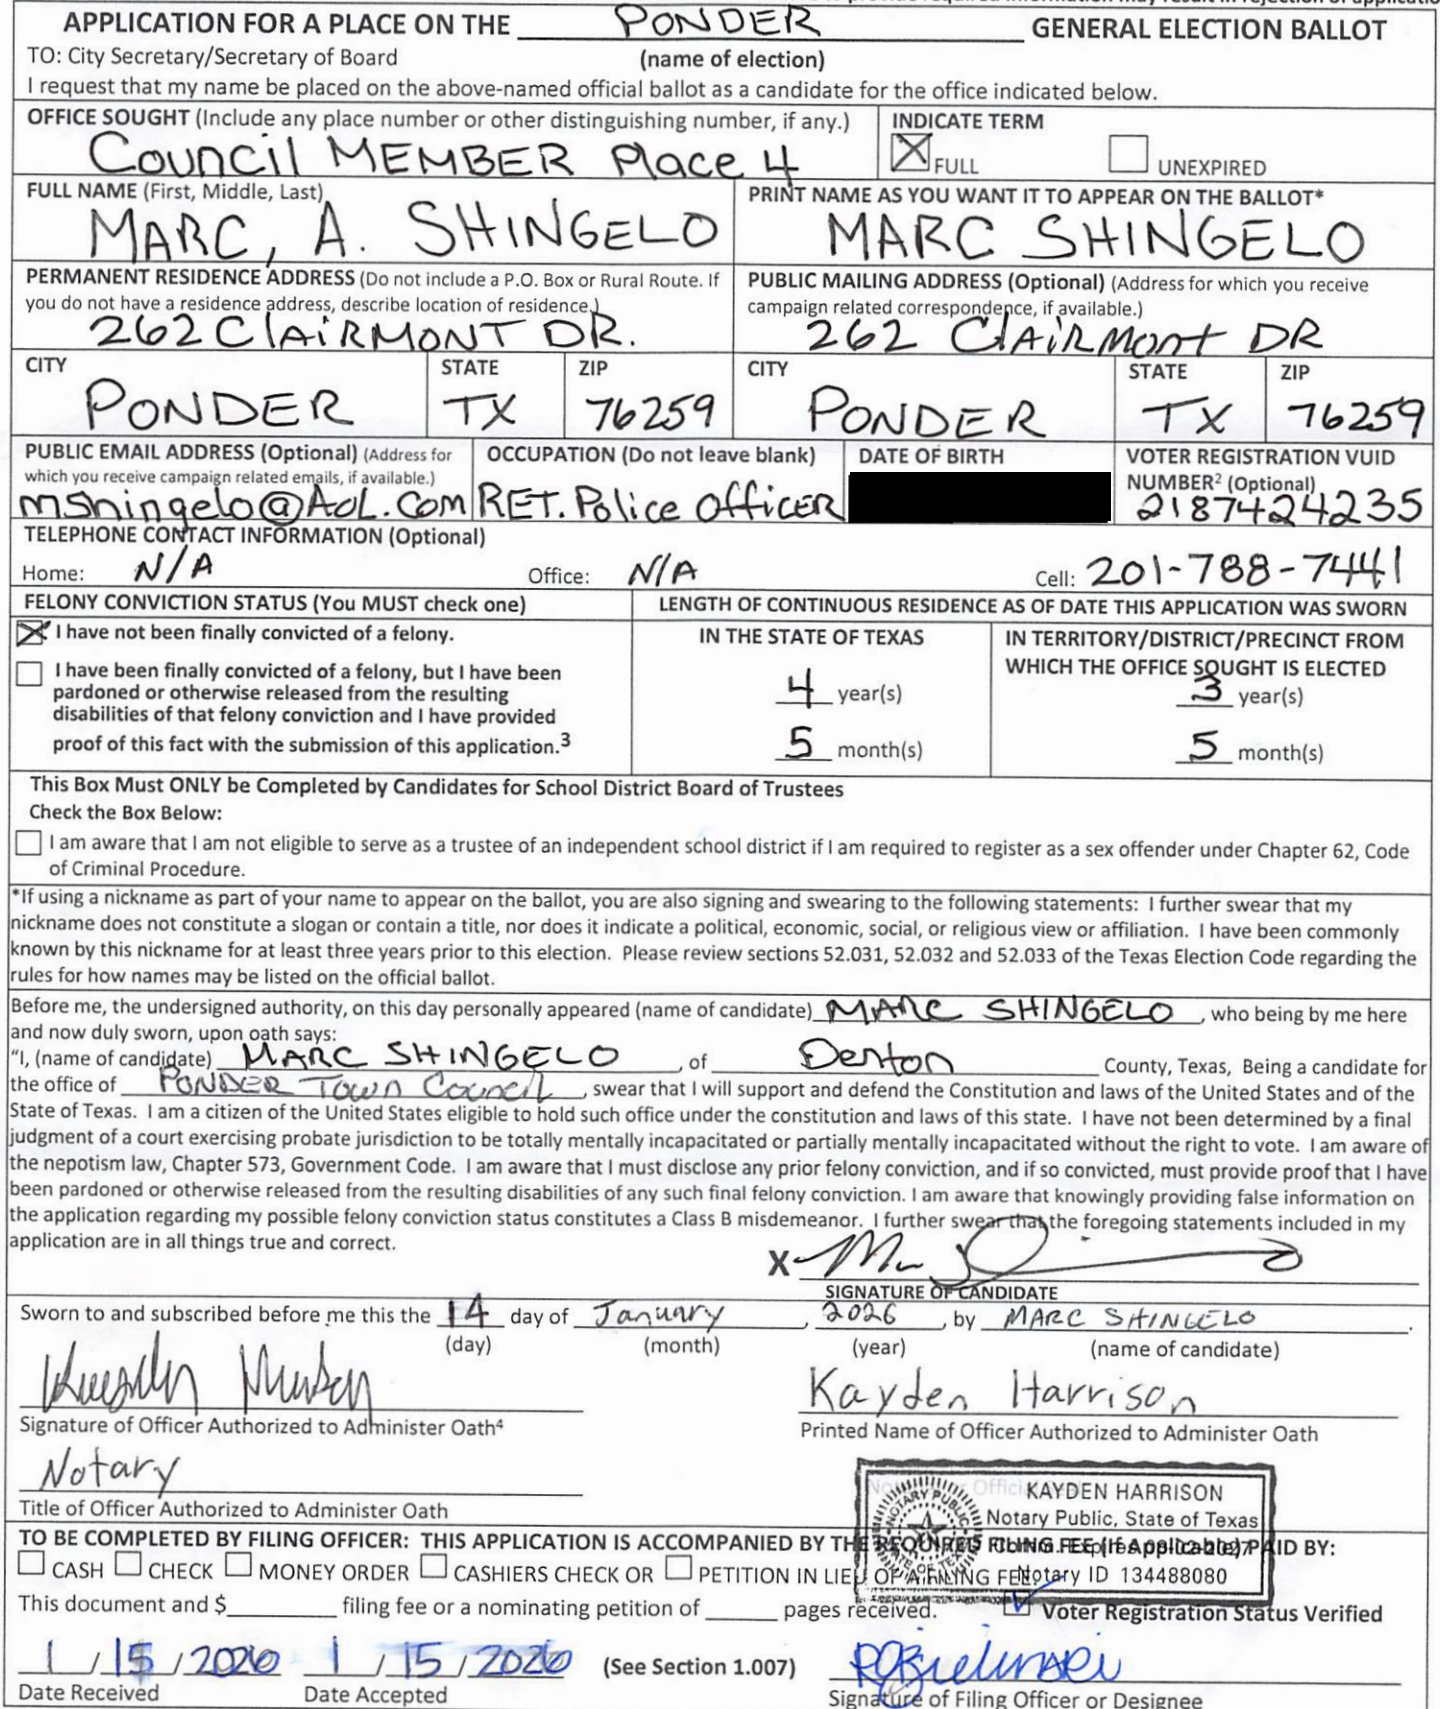 APPLICATION FOR A PLACE ON THE PONDER GENERAL ELECTION BALLOT
TO: City Secretary/Secretary of Board (name of election)
I request that my name be placed on the above-named official ballot as a candidate for the office indicated below.
OFFICE SOUGHT (Include any place number or other distinguishing number, if any.)
Council MEMBER Place 4
INDICATE TERM
FULL UNEXPIRED
FULL NAME (First, Middle, Last)
MARC, A. SHINGELO
PRINT NAME AS YOU WANT IT TO APPEAR ON THE BALLOT*
MARC SHINGELO
PERMANENT RESIDENCE ADDRESS (Do not include a P.O. Box or Rural Route. If
you do not have a residence address, describe location of residence.)
262 ClAiRMONT DR.
PUBLIC MAILING ADDRESS (Optional) (Address for which you receive
campaign related correspondence, if available.)
262 ClAiRMont DR
CITY STATE ZIP CITY STATE ZIP
PONDER TX 76259 PONDER TX 76259
PUBLIC EMAIL ADDRESS (Optional) (Address for
which you receive campaign related emails, if available.)
mshingelo@AOL.Com
OCCUPATION (Do not leave blank)
RET. Police OfficER
DATE OF BIRTH
VOTER REGISTRATION VUID
NUMBER² (Optional)
2187424235
TELEPHONE CONTACT INFORMATION (Optional)
Home: N/A Office: N/A Cell: 201-788-7441
FELONY CONVICTION STATUS (You MUST check one)
I have not been finally convicted of a felony.
I have been finally convicted of a felony, but I have been
pardoned or otherwise released from the resulting
disabilities of that felony conviction and I have provided
proof of this fact with the submission of this application.³
LENGTH OF CONTINUOUS RESIDENCE AS OF DATE THIS APPLICATION WAS SWORN
IN THE STATE OF TEXAS
4 year(s)
5 month(s)
IN TERRITORY/DISTRICT/PRECINCT FROM
WHICH THE OFFICE SOUGHT IS ELECTED
3 year(s)
5 month(s)
This Box Must ONLY be Completed by Candidates for School District Board of Trustees
Check the Box Below:
I am aware that I am not eligible to serve as a trustee of an independent school district if I am required to register as a sex offender under Chapter 62, Code
of Criminal Procedure.
*If using a nickname as part of your name to appear on the ballot, you are also signing and swearing to the following statements: I further swear that my
nickname does not constitute a slogan or contain a title, nor does it indicate a political, economic, social, or religious view or affiliation. I have been commonly
known by this nickname for at least three years prior to this election. Please review sections 52.031, 52.032 and 52.033 of the Texas Election Code regarding the
rules for how names may be listed on the official ballot.
Before me, the undersigned authority, on this day personally appeared (name of candidate) MARC SHINGELO, who being by me here
and now duly sworn, upon oath says:
"I, (name of candidate) MARC SHINGELO, of Denton County, Texas, Being a candidate for
the office of PONDER Town Council, swear that I will support and defend the Constitution and laws of the United States and of the
State of Texas. I am a citizen of the United States eligible to hold such office under the constitution and laws of this state. I have not been determined by a final
judgment of a court exercising probate jurisdiction to be totally mentally incapacitated or partially mentally incapacitated without the right to vote. I am aware of
the nepotism law, Chapter 573, Government Code. I am aware that I must disclose any prior felony conviction, and if so convicted, must provide proof that I have
been pardoned or otherwise released from the resulting disabilities of any such final felony conviction. I am aware that knowingly providing false information on
the application regarding my possible felony conviction status constitutes a Class B misdemeanor. I further swear that the foregoing statements included in my
application are in all things true and correct.
X
SIGNATURE OF CANDIDATE
Sworn to and subscribed before me this the 14 day of January, 2026, by MARC SHINGELO.
(day) (month) (year) (name of candidate)
Kayden Harrison
Signature of Officer Authorized to Administer Oath⁴ Printed Name of Officer Authorized to Administer Oath
Notary
Title of Officer Authorized to Administer Oath
KAYDEN HARRISON
Notary Public, State of Texas
Notary ID 134488080
NOTARY PUBLIC
STATE OF TEXAS
TO BE COMPLETED BY FILING OFFICER: THIS APPLICATION IS ACCOMPANIED BY THE REQUIRED FILING FEE (If Applicable) PAID BY:
CASH CHECK MONEY ORDER CASHIERS CHECK OR PETITION IN LIEU OF A FILING FEE.
This document and $ filing fee or a nominating petition of pages received. Voter Registration Status Verified
1/15/2026 1/15/2026 (See Section 1.007)
Date Received Date Accepted Signature of Filing Officer or Designee